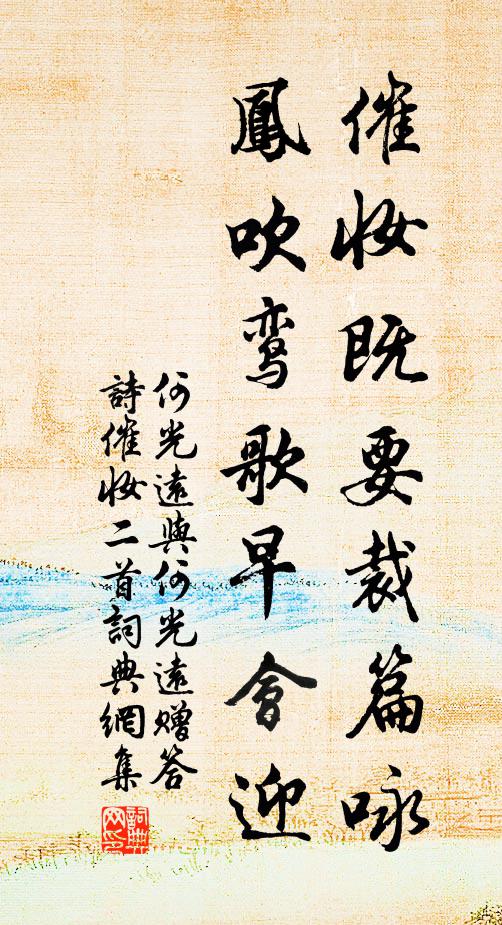 催妆既要裁篇咏
鳳吹鸾歌早會迎
何光遠與何光遠贈答
詩催妆二首詞典網集